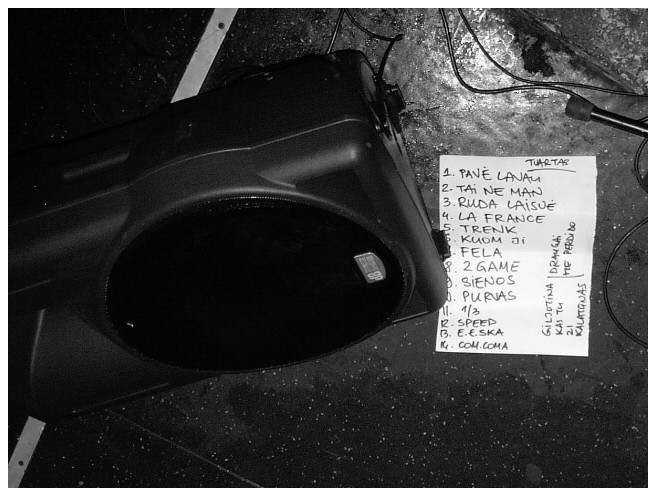 TVARTAS
1. PAVĖ LANAU
2. TAI NE MAN
3. RUDA LAISVĖ
4. LA FRANCE
5. TRENK
6. KUOM JI
7. FELA
8. 2 GAME
9. SIENOS
10. PURVAS
11. 1/3
12. SPEED
13. E.E.SKA
14. COM.COMA
GILJOTINA
KAS TU
21
KALAŠNAS
DRAUGAI
ME PERDIDO